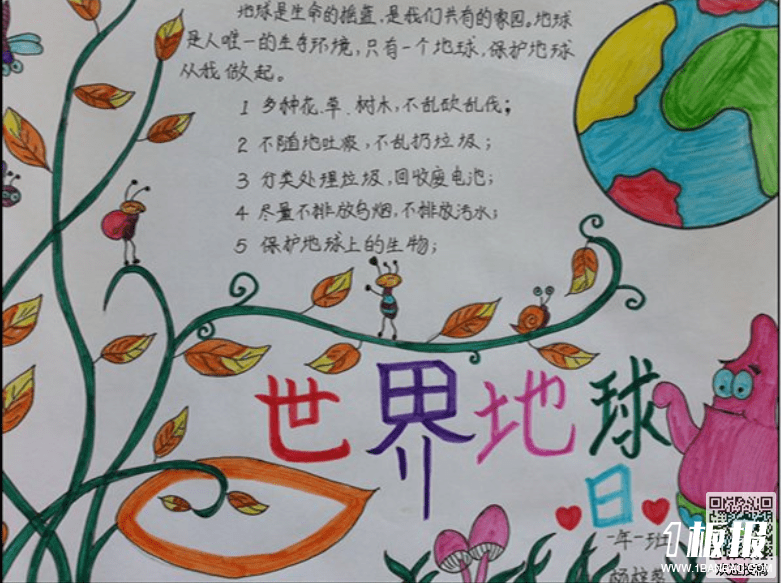 地球是生命的摇篮，是我们共有的家园。地球
是人唯一的生存环境，只有一个地球，保护地球
从我做起。
1 多种花、草、树木，不乱砍乱伐；
2 不随地吐痰，不乱扔垃圾；
3 分类处理垃圾，回收废电池；
4 尽量不排放乌烟，不排放污水；
5 保护地球上的生物；
世界地球
日
一年一班
1板报
WWW.1BANBAO.COM